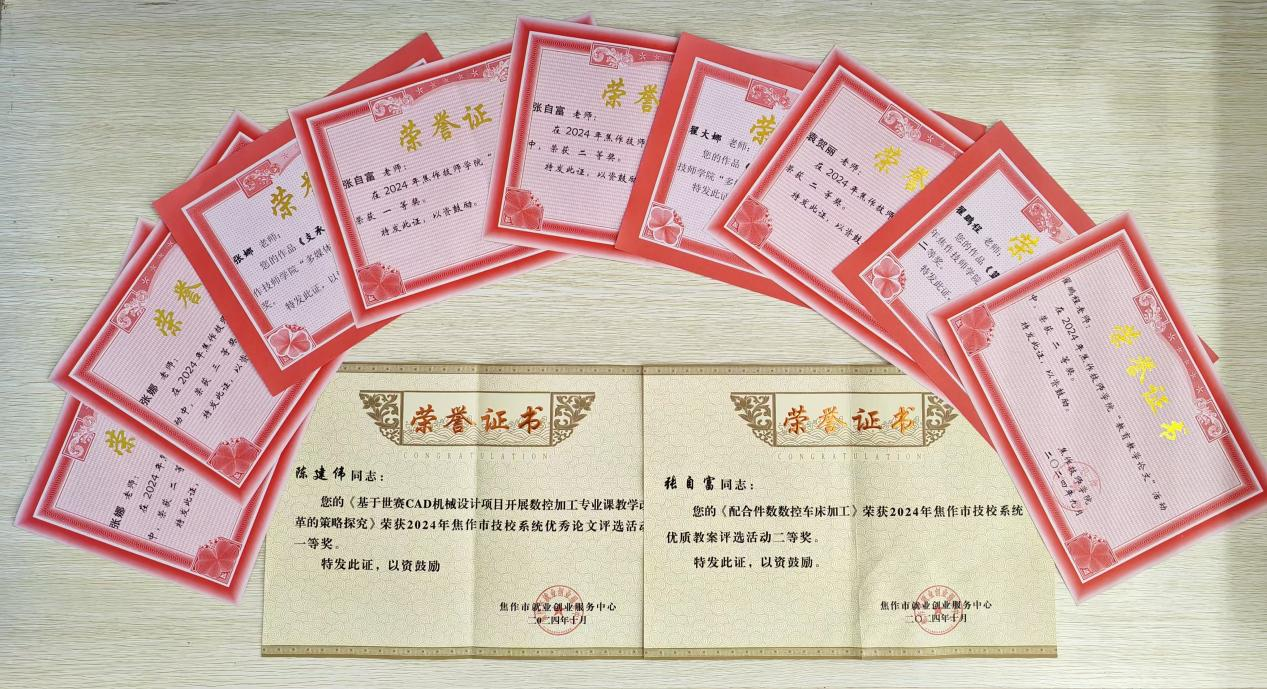 荣
张娜 老师:
在2024年
中,荣获 二 等
特发此证,
荣誉
张娜 老师:
在2024年焦作技师
动中,荣获 三 等奖
特发此证,以资
荣
张娜 老师:
您的作品《支承
作技师学院“多媒体
奖。
特发此证,以
荣誉证
张自富 老师:
在2024年焦作技师学院“
荣获 一 等奖。
特发此证,以资鼓励。
荣誉
张自富 老师:
在2024年焦作技师
中,荣获 二 等奖。
特发此证,以资鼓励
荣
翟大娜 老师:
您的作品《
技师学院“多
特发此证
荣誉
袁贺丽 老师:
在2024年焦作技师
荣获 二 等奖。
特发此证,以资鼓
荣
翟鹏程 老师
您的作品《
年焦作技师学院
二等奖。
特发此证,以
荣誉证书
翟鹏程老师:
在2024年焦作技师学院“教育教学论文”活动
中,荣获 二 等奖。
特发此证,以资鼓励。
焦作技师学院
二〇二四年九月
荣誉证书
CONGRATULATION
陈建伟同志:
您的《基于世赛CAD机械设计项目开展数控加工专业课教学改
革的策略探究》荣获2024年焦作市技校系统优秀论文评选活动
一等奖。
特发此证,以资鼓励
焦作市就业创业服务中心
二〇二四年十月
荣誉证书
CONGRATULATION
张自富同志:
您的《配合件数数控车床加工》荣获2024年焦作市技校系统
优质教案评选活动二等奖。
特发此证,以资鼓励。
焦作市就业创业服务中心
二〇二四年十月